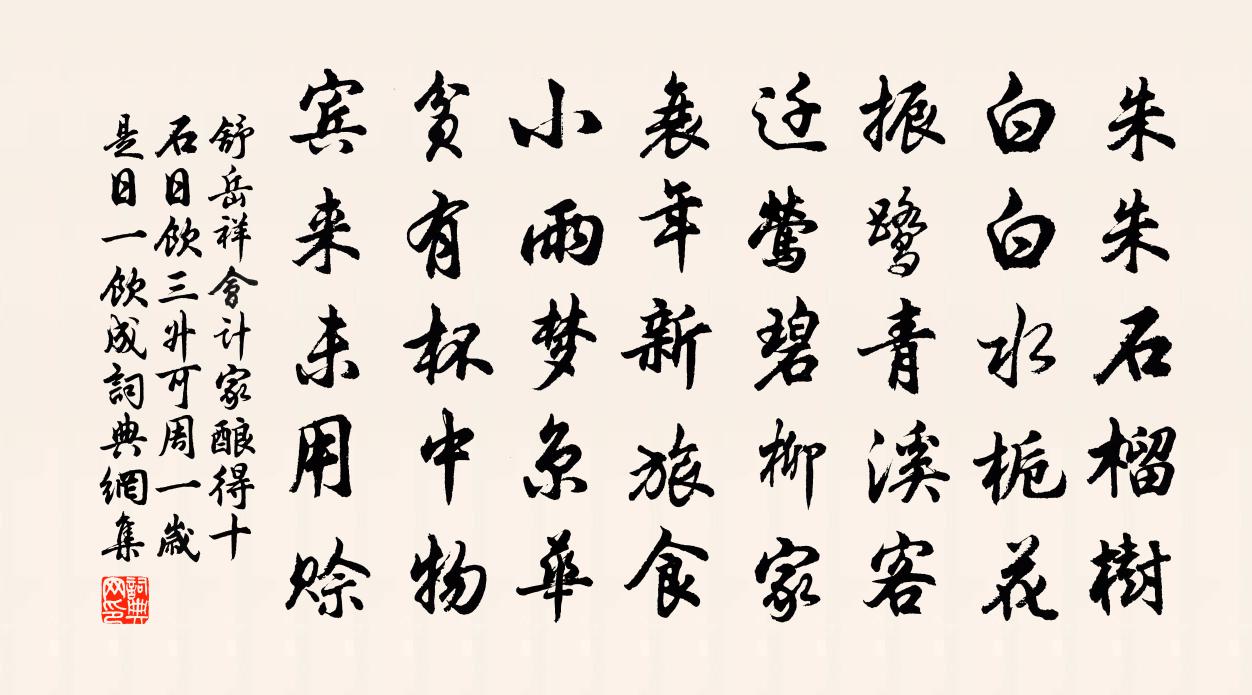 朱朱石榴樹
白白水栀花
振鹭青溪客
迁莺碧柳家
衰年新旅食
小雨梦京華
贫有杯中物
宾来未用赊
舒岳祥會计家酿得十
石日飲三升可周一歲
是日一飲成詞典網集
詞典网印